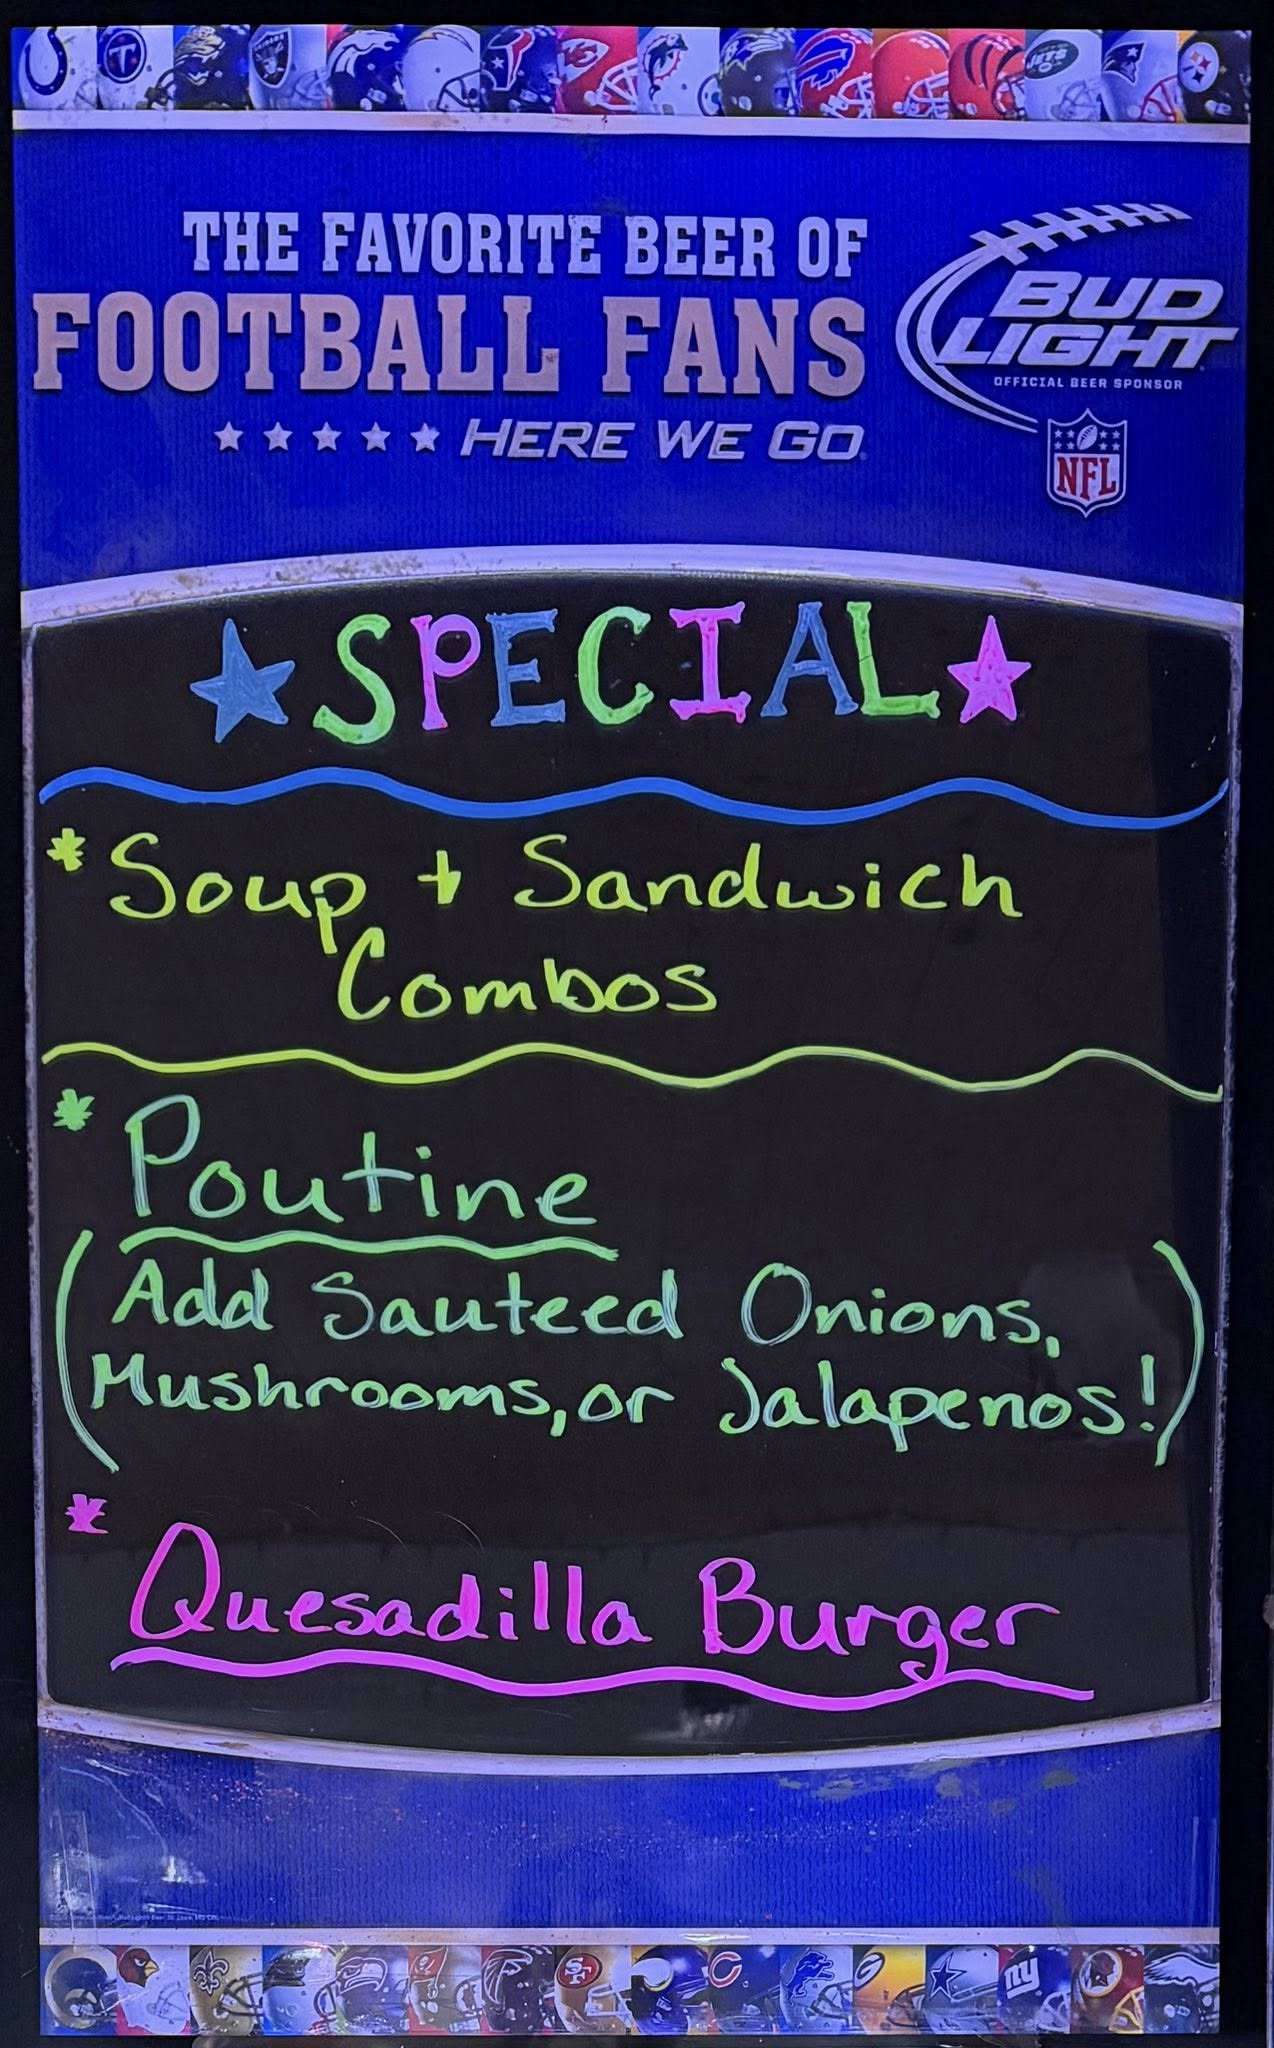 THE FAVORITE BEER OF
FOOTBALL FANS
HERE WE GO
BUD
LIGHT
OFFICIAL BEER SPONSOR
NFL
SPECIAL
* Soup + Sandwich
Combos
* Poutine
(Add Sauteed Onions,
Mushrooms, or Jalapenos!)
* Quesadilla Burger